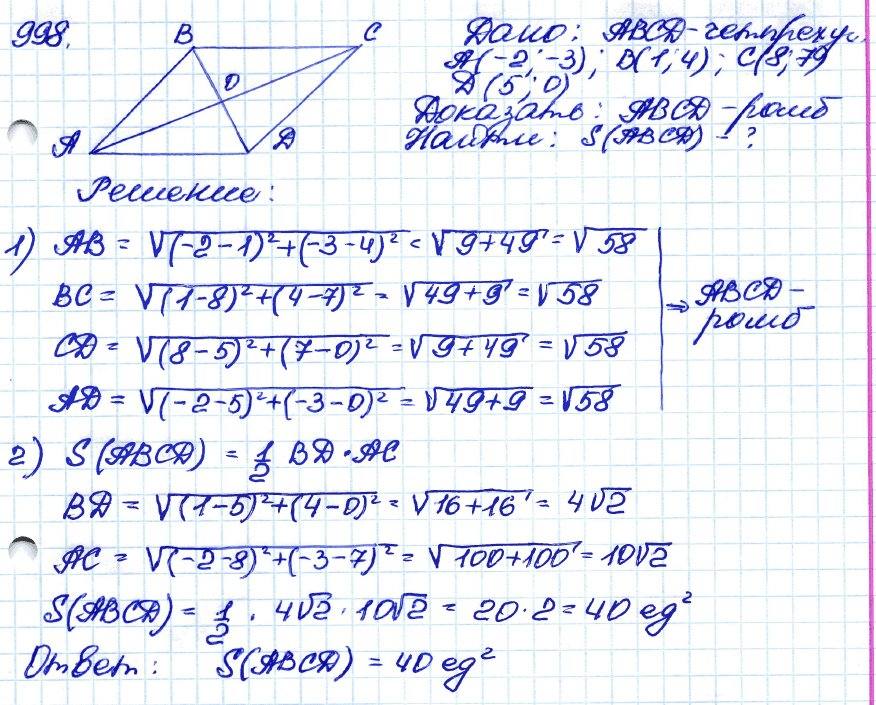 998.
B C
O
A D
Дано: ABCD-четыреху
A(-2; -3); B(1; 4); C(8; 7)
D(5; 0)
Доказать: ABCD - ромб
Найти: S(ABCD) - ?
Решение:
1) AB = √(-2-1)²+(-3-4)² = √9+49 = √58
BC = √(1-8)²+(4-7)² = √49+9 = √58
CD = √(8-5)²+(7-0)² = √9+49 = √58
AD = √(-2-5)²+(-3-0)² = √49+9 = √58
⇒ ABCD -
ромб
2) S(ABCD) = 1/2 BD·AC
BD = √(1-5)²+(4-0)² = √16+16 = 4√2
AC = √(-2-8)²+(-3-7)² = √100+100 = 10√2
S(ABCD) = 1/2 · 4√2 · 10√2 = 20·2 = 40 ед²
Ответ: S(ABCD) = 40 ед²